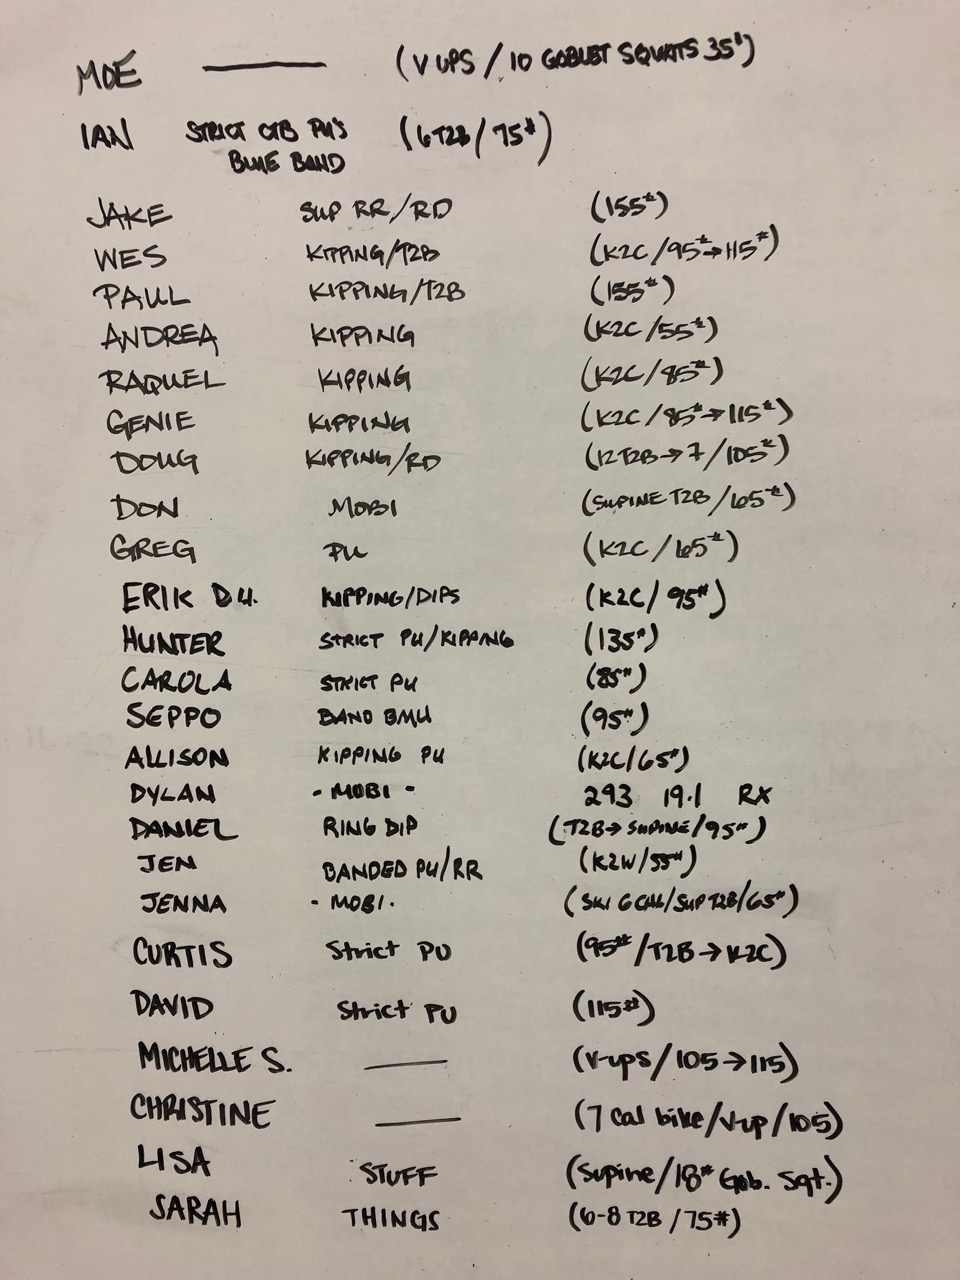 MOE — (V UPS / 10 GOBLET SQUATS 35#)
IAN STRICT CTB PU'S (6 T2B / 75#)
BLUE BAND
JAKE SUP RR/RD (155#)
WES KIPPING/T2B (K2C / 95# → 115#)
PAUL KIPPING/T2B (155#)
ANDREA KIPPING (K2C / 55#)
RAQUEL KIPPING (K2C / 85#)
GENIE KIPPING (K2C / 85# → 115#)
DOUG KIPPING/RD (12 T2B → 7 / 105#)
DON MOBI (SUPINE T2B / 65#)
GREG PU (K2C / 65#)
ERIK DU. KIPPING/DIPS (K2C / 95#)
HUNTER STRICT PU/KIPPING (135#)
CAROLA STRICT PU (85#)
SEPPO BAND BMU (95#)
ALLISON KIPPING PU (K2C / 65#)
DYLAN - MOBI - 293 19.1 RX
DANIEL RING DIP (T2B → SUPINE / 95#)
JEN BANDED PU/RR (K2W / 55#)
JENNA - MOBI. (SKI 6 CAL / SUP T2B / 65#)
CURTIS Strict PU (95# / T2B → K2C)
DAVID Strict PU (115#)
MICHELLE S. — (V-ups / 105 → 115)
CHRISTINE — (7 Cal bike / V-up / 105)
LISA STUFF (Supine / 18# Gob. Sqt.)
SARAH THINGS (6-8 T2B / 75#)